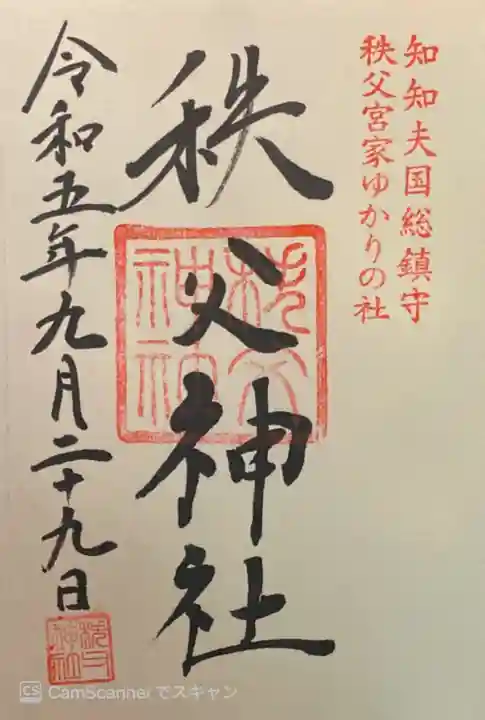 知知夫国総鎮守
秩父宮家ゆかりの社
秩父神社
秩父神社
令和五年九月二十九日
秩父神社
CS CamScanner でスキャン